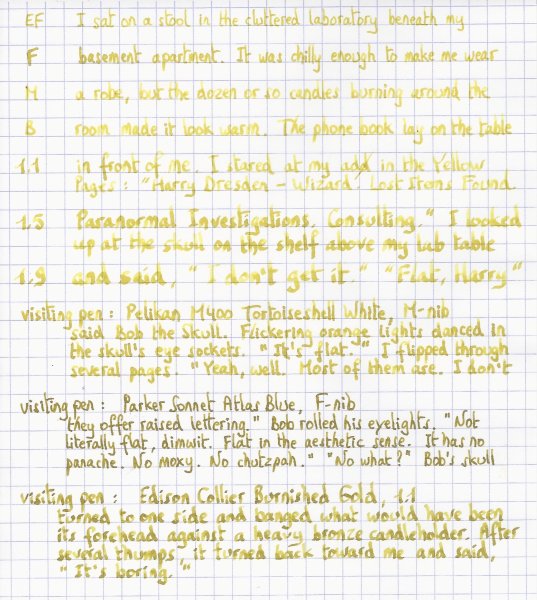 EF I sat on a stool in the cluttered laboratory beneath my
F basement apartment. It was chilly enough to make me wear
M a robe, but the dozen or so candles burning around the
B room made it look warm. The phone book lay on the table
1.1 in front of me. I stared at my add in the Yellow
Pages: "Harry Dresden - Wizard. Lost Items Found.
1.5 Paranormal Investigations. Consulting." I looked
up at the skull on the shelf above my lab table
1.9 and said, "I don't get it." "Flat, Harry"
visiting pen: Pelikan M400 Tortoiseshell White, M-nib
said Bob the Skull. Flickering orange lights danced in
the skull's eye sockets. "It's flat." I flipped through
several pages. "Yeah, well. Most of them are. I don't
visiting pen: Parker Sonnet Atlas Blue, F-nib
they offer raised lettering." Bob rolled his eyelights. "Not
literally flat, dimwit. Flat in the aesthetic sense. It has no
panache. No moxy. No chutzpah." "No what?" Bob's skull
visiting pen: Edison Collier Burnished Gold, 1.1
turned to one side and banged what would have been
its forehead against a heavy bronze candleholder. After
several thumps, it turned back toward me and said,
"It's boring."